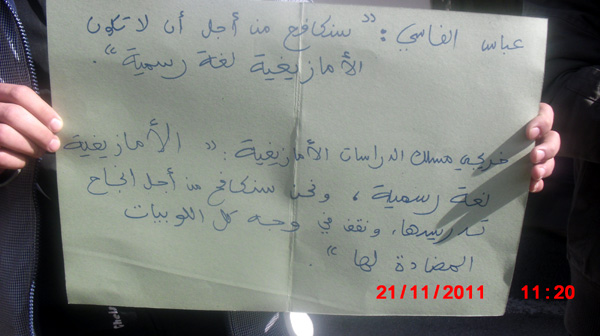 عباس الفاسي: " سنكافح من أجل أن لا تكون
الأمازيغية لغة رسمية ".
خريجي مسلك الدراسات الأمازيغية: " الأمازيغية
لغة رسمية، ونحن سنكافح من أجل انجاح
تدريسها، ونقف في وجه كل اللوبيات
المضادة لها ".
21/11/2011 11:20